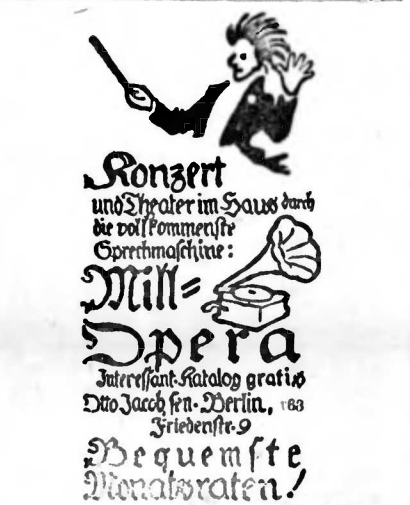 Konzert
und Theater im Haus durch
die vollkommenste
Sprechmaschine:
Mill=
Opera
Interessant. Katalog gratis
Otto Jacob sen. Berlin, 183
Friedenstr. 9
Bequemste
Monatsraten!